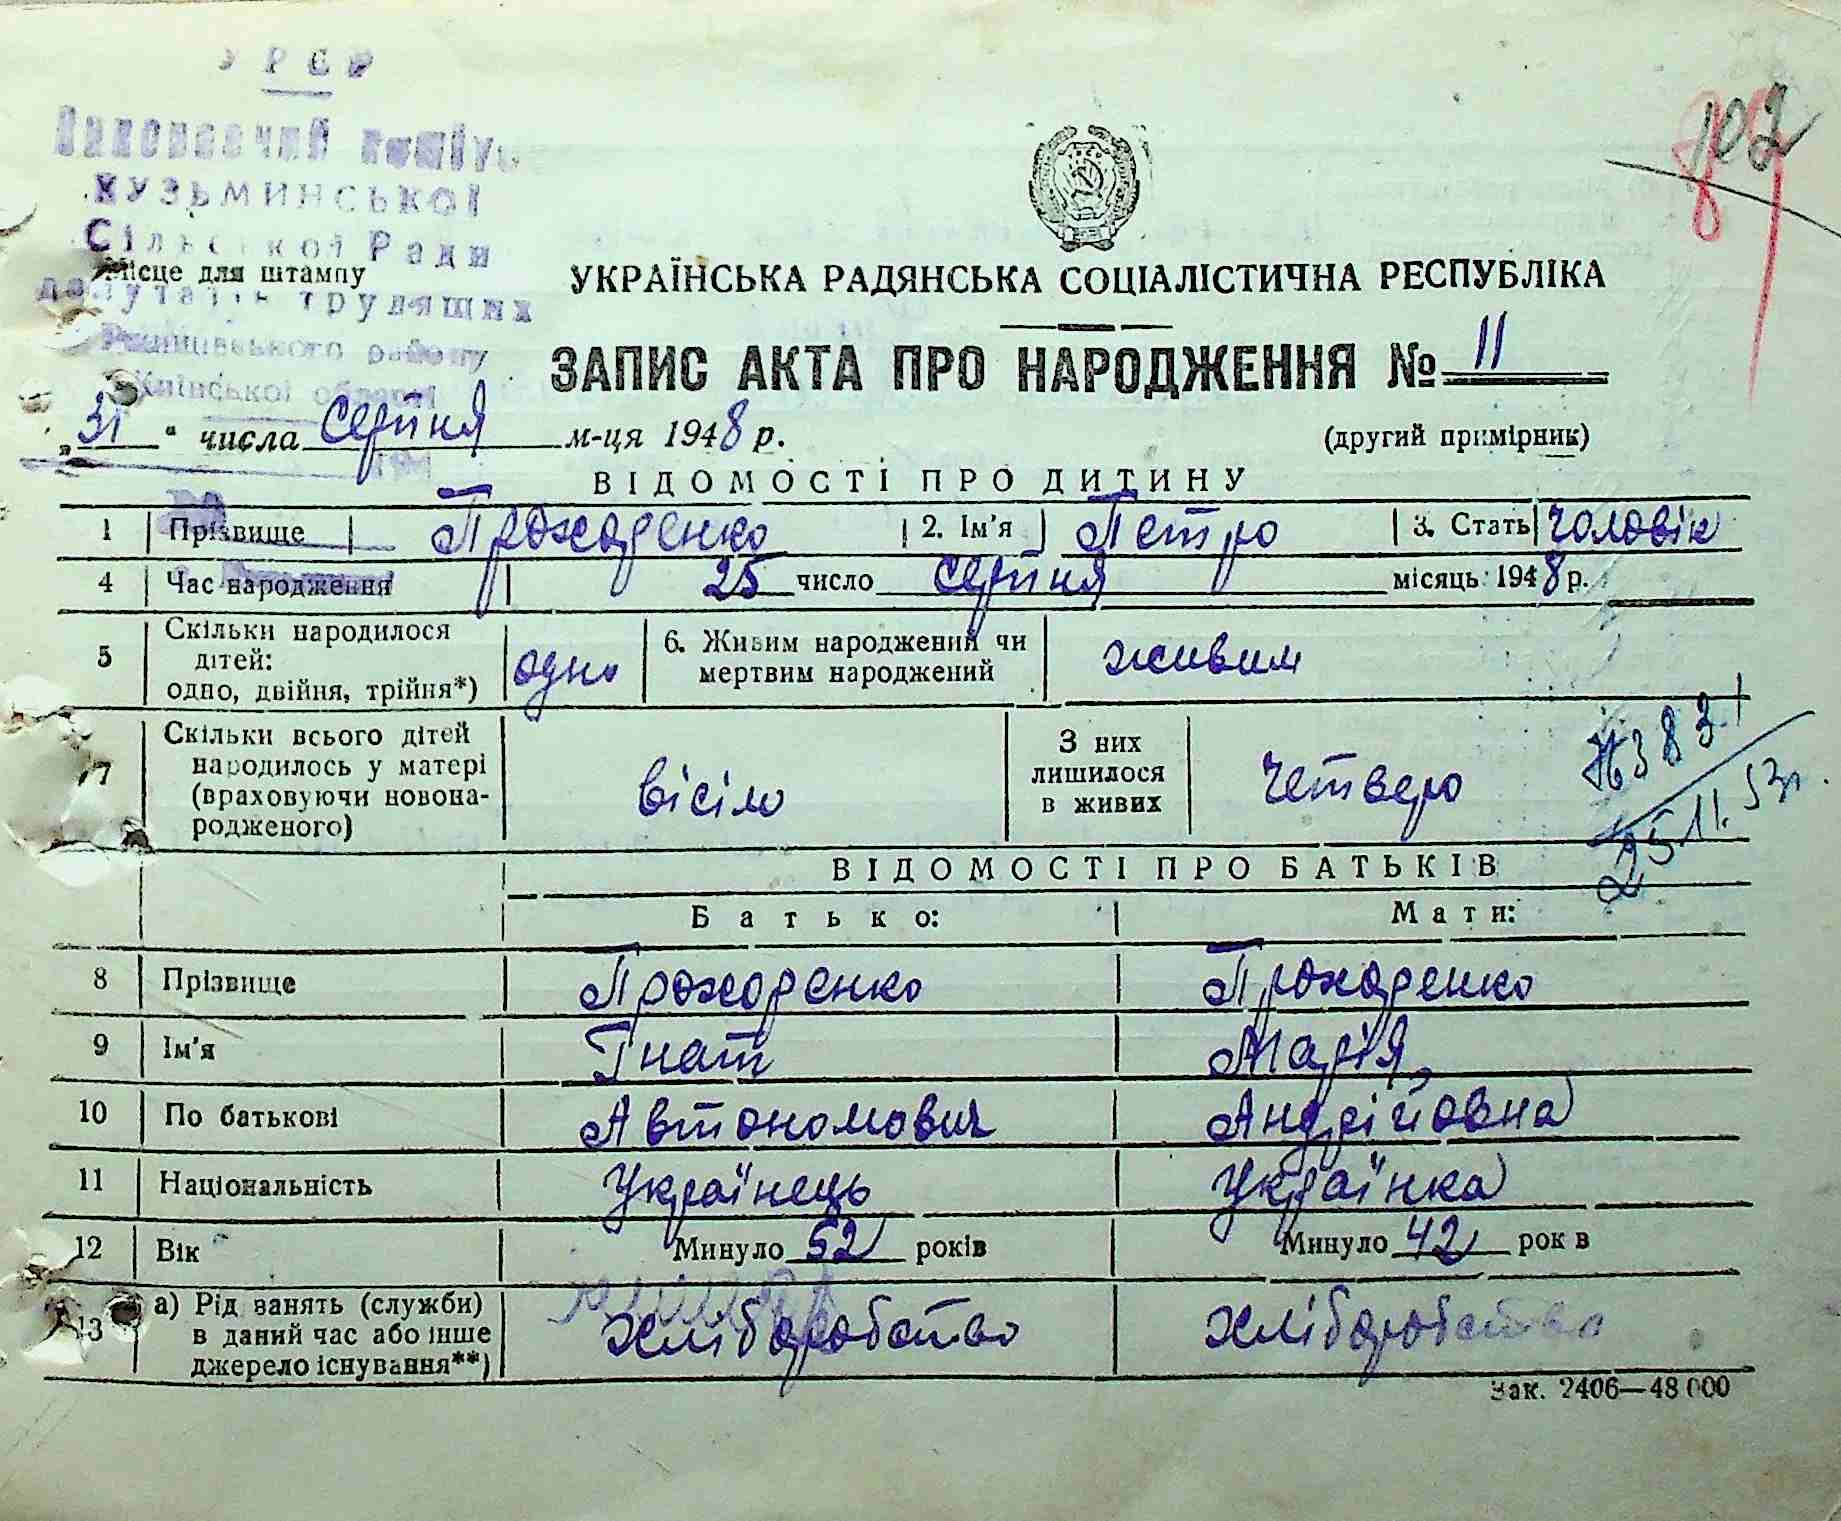 УРСР
Виконавчий коміт
КУЗЬМИНСЬКОЇ
Сільської Ради
депутатів трудящих
району
Київської області
Місце для штампу
102
УКРАЇНСЬКА РАДЯНСЬКА СОЦІАЛІСТИЧНА РЕСПУБЛІКА
ЗАПИС АКТА ПРО НАРОДЖЕННЯ № 11
„31“ числа серпня м-ця 1948 р.
(другий примірник)
ВІДОМОСТІ ПРО ДИТИНУ
1 Прізвище Прохоренко 2. Ім'я Петро 3. Стать чоловік
4 Час народження 25 число серпня місяць 1948 р.
5 Скільки народилося дітей: одно, двійня, трійня*) одно 6. Живим народжений чи мертвим народжений живим
7 Скільки всього дітей народилось у матері (враховуючи новонародженого) вісім З них лишилося в живих четверо
25 11. 53р.
ВІДОМОСТІ ПРО БАТЬКІВ
Батько: Мати:
8 Прізвище Прохоренко Прохоренко
9 Ім'я Гнат Марія
10 По батькові Автономович Андрійовна
11 Національність Українець Українка
12 Вік Минуло 52 років Минуло 42 рок в
13 а) Рід занять (служби) в даний час або інше джерело існування**) хліборобство хліборобство
Зак. 2406—48 000